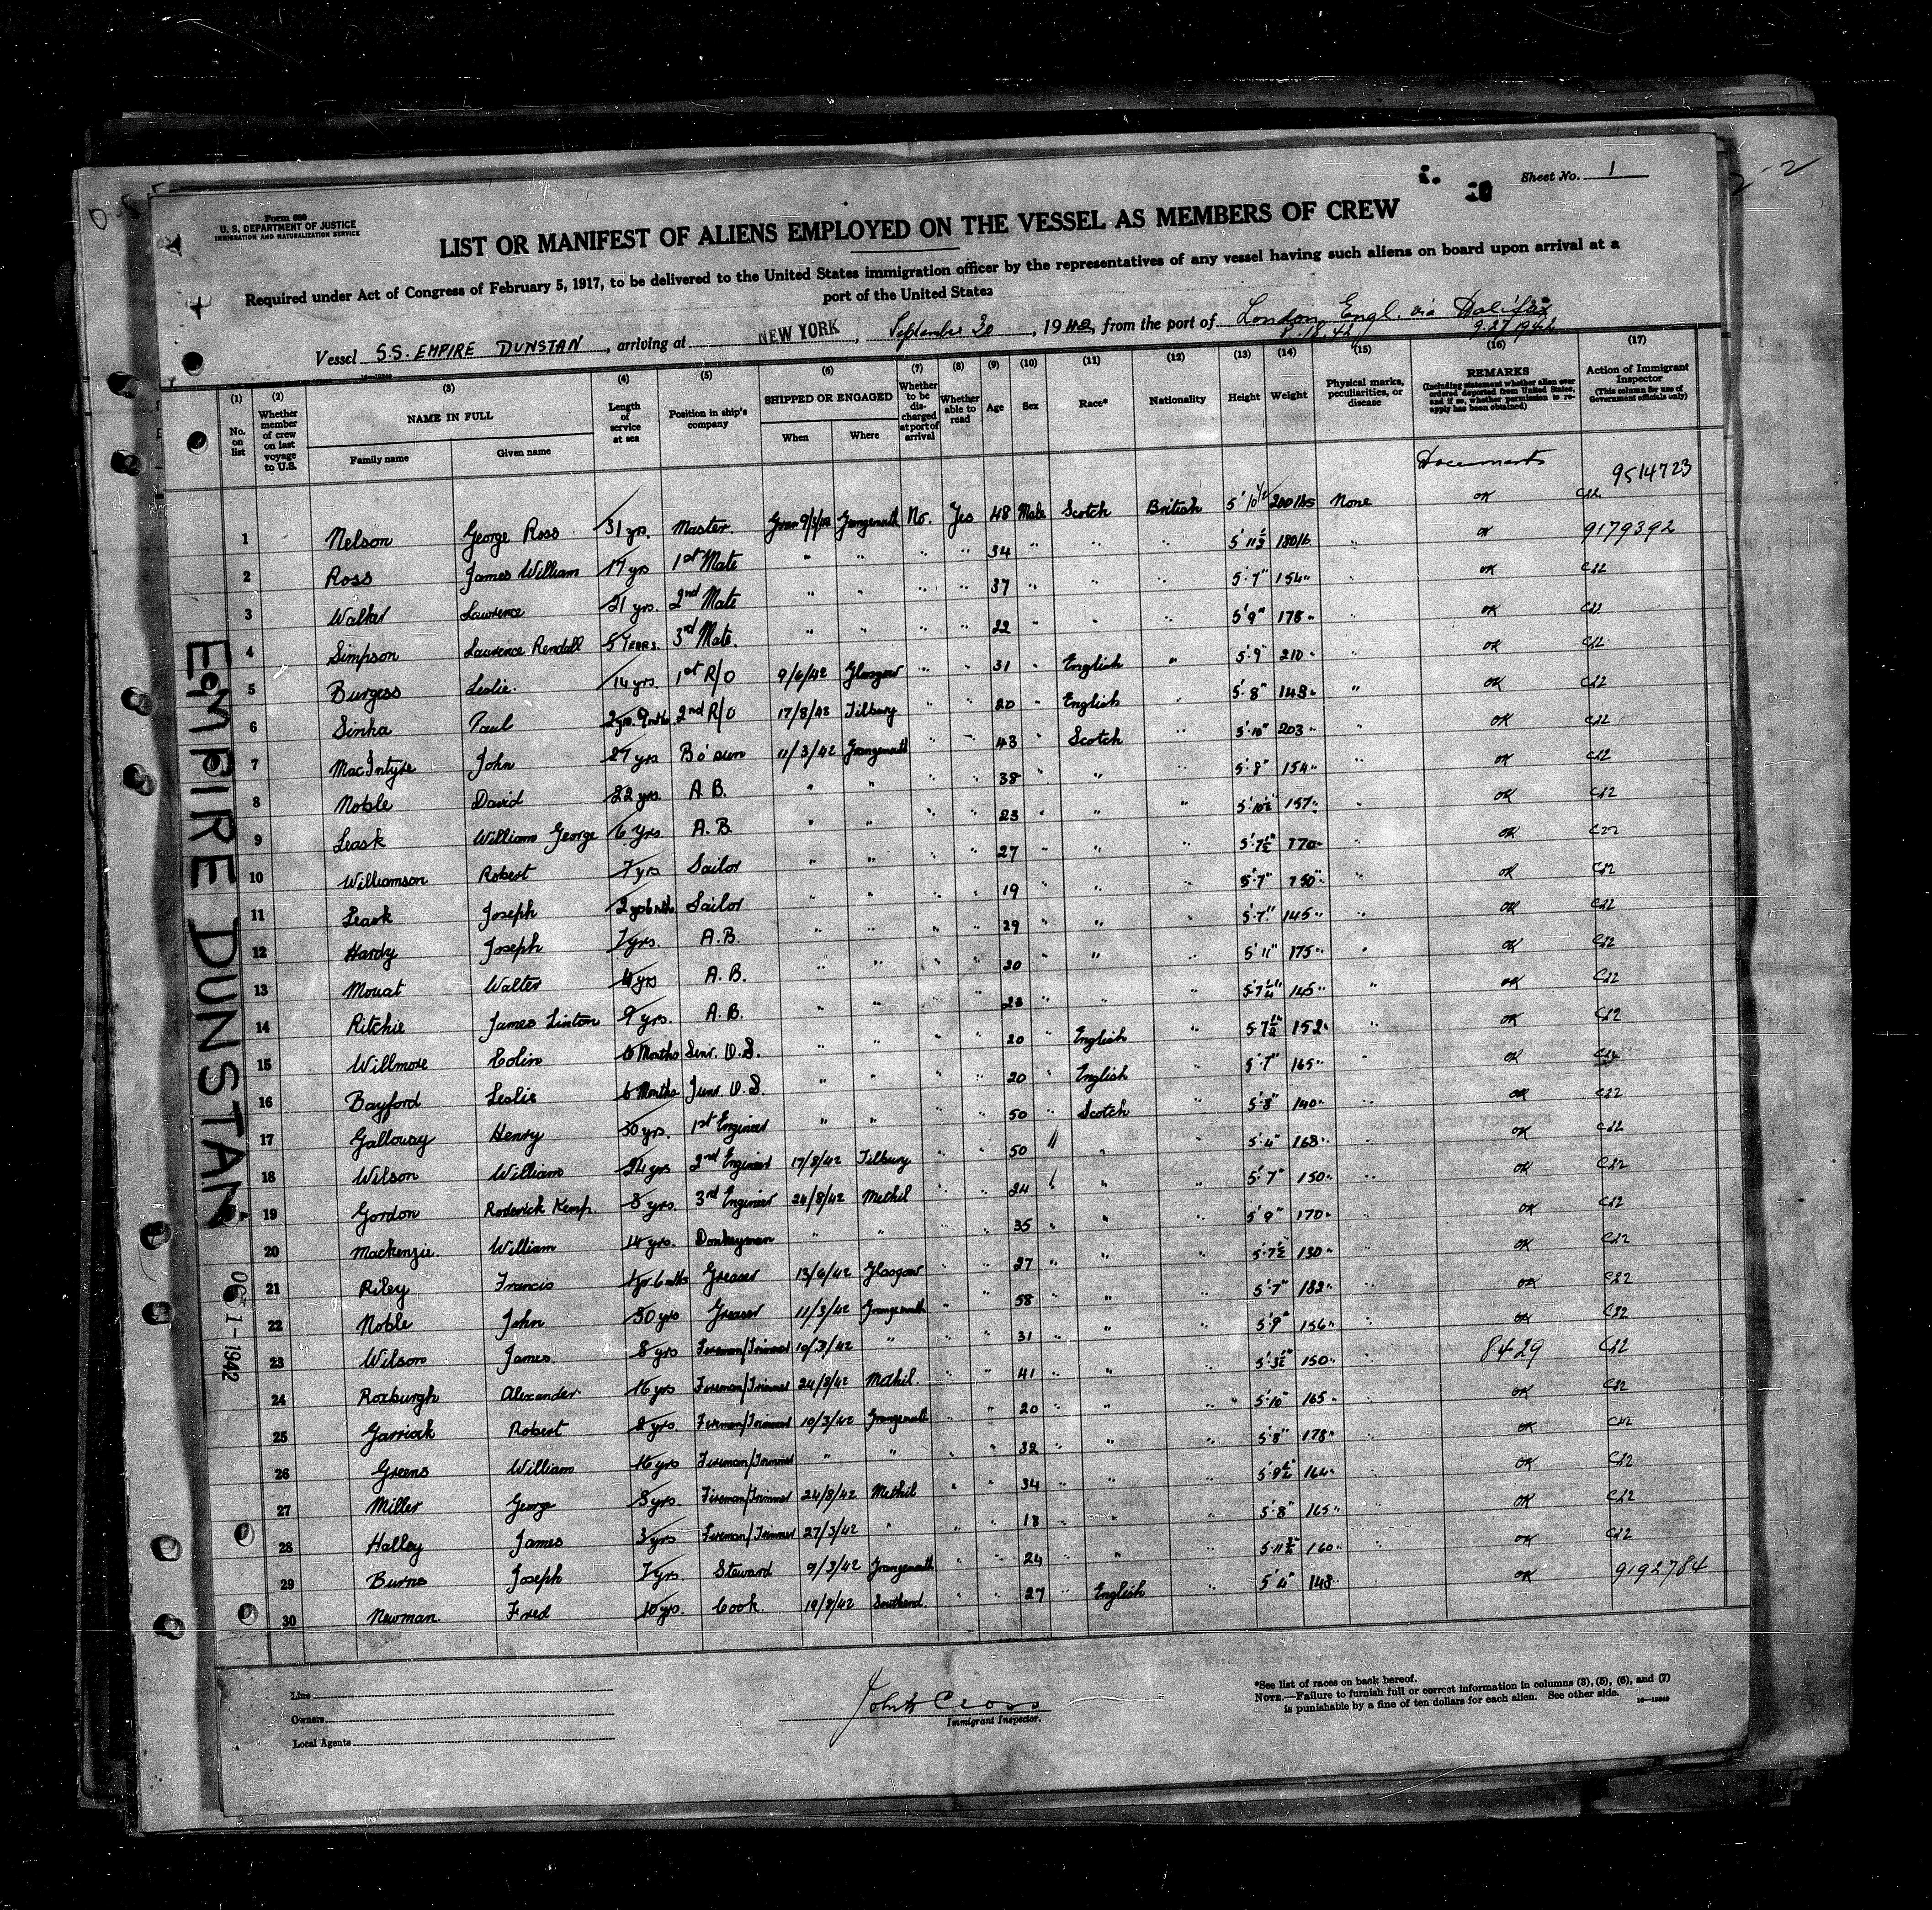 Sheet No. 1
Form 680
U. S. DEPARTMENT OF JUSTICE
IMMIGRATION AND NATURALIZATION SERVICE
LIST OR MANIFEST OF ALIENS EMPLOYED ON THE VESSEL AS MEMBERS OF CREW
Required under Act of Congress of February 5, 1917, to be delivered to the United States immigration officer by the representatives of any vessel having such aliens on board upon arrival at a
port of the United States
Vessel S.S. EMPIRE DUNSTAN, arriving at NEW YORK, September 30, 1942, from the port of London, Engl. via Halifax
9.27.1942
(1) (2) (3) (4) (5) (6) (7) (8) (9) (10) (11) (12) (13) (14) (15) (16) (17)
No. on list
Whether member of crew on last voyage to U.S.
NAME IN FULL
Family name
Given name
Length of service at sea
Position in ship's company
SHIPPED OR ENGAGED
When
Where
Whether to be discharged at port of arrival
Whether able to read
Age
Sex
Race*
Nationality
Height
Weight
Physical marks, peculiarities, or disease
REMARKS
(Including statement whether alien ever ordered deported from United States, and if so, whether permission to reapply has been obtained)
Action of Immigrant Inspector
(This column for use of Government officials only)
Documents
9514723
1 Nelson George Ross 31 yrs. Master Grangemouth No. Yes 48 Male Scotch British 5' 10 1/2 200 lbs None OK
9179392
2 Ross James William 17 yrs 1st Mate " " " " 34 " " " 5' 11 1/2 180 lb. " OK
3 Walker Lawrence 21 yrs. 2nd Mate " " " " 37 " " " 5'.7" 154 " " OK
4 Simpson Laurence Rendall 5 years. 3rd Mate. " " " " 22 " " " 5'9" 178 " " OK
5 Burgess Leslie. 14 yrs. 1st R/O 9/6/42 Glasgow " " 31 " English " 5'.9" 210 " " OK
6 Sinha Paul 2 yrs. 9 mths. 2nd R/O 17/8/42 Tilbury " " 20 " English " 5'.8" 148 " " OK
7 MacIntyre John 27 yrs Bo'sun 11/3/42 Grangemouth " " 43 " Scotch " 5'.10" 203 " " OK
8 Noble David 22 yrs. A.B. " " " " 38 " " " 5'.8" 154 " " OK
9 Leask William George 6 yrs. A.B. " " " " 23 " " " 5'.10 1/2" 157 " " OK
10 Williamson Robert 7 yrs Sailor " " " " 27 " " " 5'.7 1/2" 170 " " OK
11 Leask Joseph 2 yrs 6 mths Sailor " " " " 19 " " " 5'.7" 150 " " OK
12 Hardy Joseph 7 yrs. A.B. " " " " 29 " " " 5'.7" 145 " " OK
13 Mouat Walter 4 yrs A.B. " " " " 20 " " " 5' 11" 175 " " OK
14 Ritchie James Linton 9 yrs. A.B. " " " " 23 " " " 5'.7 1/4" 145 " " OK
15 Willmore Colin 6 Months Senr. O.S. " " " " 20 " English " 5'.7 1/2" 152 " " OK
16 Bayford Leslie 6 Months Junr. O.S. " " " " 20 " English " 5'.7" 165 " " OK
17 Galloway Henry 30 yrs. 1st Engineer " " " " 50 " Scotch " 5'.8" 140 " " OK
18 Wilson William 24 yrs 2nd Engineer 17/8/42 Tilbury " " 50 " " " 5'.4" 168 " " OK
19 Gordon Roderick Kemp. 8 yrs. 3rd Engineer 24/8/42 Methil " " 24 " " " 5'.7" 150 " " OK
20 Mackenzie. William 14 yrs. Donkeyman " " " " 35 " " " 5'9" 170 " " OK
21 Riley Francis 1 yr. 6 mths Greaser 13/6/42 Glasgow " " 27 " " " 5'.7 1/2" 130 " " OK
22 Noble John 30 yrs Greaser 11/3/42 Grangemouth " " 58 " " " 5'.7" 182 " " OK
23 Wilson James. 8 yrs Fireman/Trimmer 10/3/42 " " " 31 " " " 5'.9" 156 " " OK
8429
24 Roxburgh Alexander. 16 yrs Fireman/Trimmer 24/8/42 Methil. " " 41 " " " 5'.3 1/2" 150 "
25 Garriock Robert 2 yrs. Fireman/Trimmer 10/3/42 Grangemouth " " 20 " " " 5'.10" 165 " " OK
26 Greens William 16 yrs Fireman/Trimmer " " " " 32 " " " 5'.8" 178 " " OK
27 Miller George 8 yrs. Fireman/Trimmer 24/8/42 Methil " " 34 " " " 5'.9 1/2" 164 " " OK
28 Halley James 3 yrs Fireman/Trimmer 27/3/42 " " " 18 " " " 5'.8" 165 " " OK
29 Burns Joseph 7 yrs. Steward 9/3/42 Grangemouth " " 24 " " " 5'.11 1/2" 160 " " OK
30 Newman. Fred 10 yrs. Cook. 19/8/42 Southend. " " 27 " English " 5'4" 148 " " OK
9192784
EMPIRE DUNSTAN
OCT 1-1942
Line
Owners
Local Agents
John Cross
Immigrant Inspector.
*See list of races on back hereof.
NOTE.—Failure to furnish full or correct information in columns (3), (5), (6), and (7)
is punishable by a fine of ten dollars for each alien. See other side.